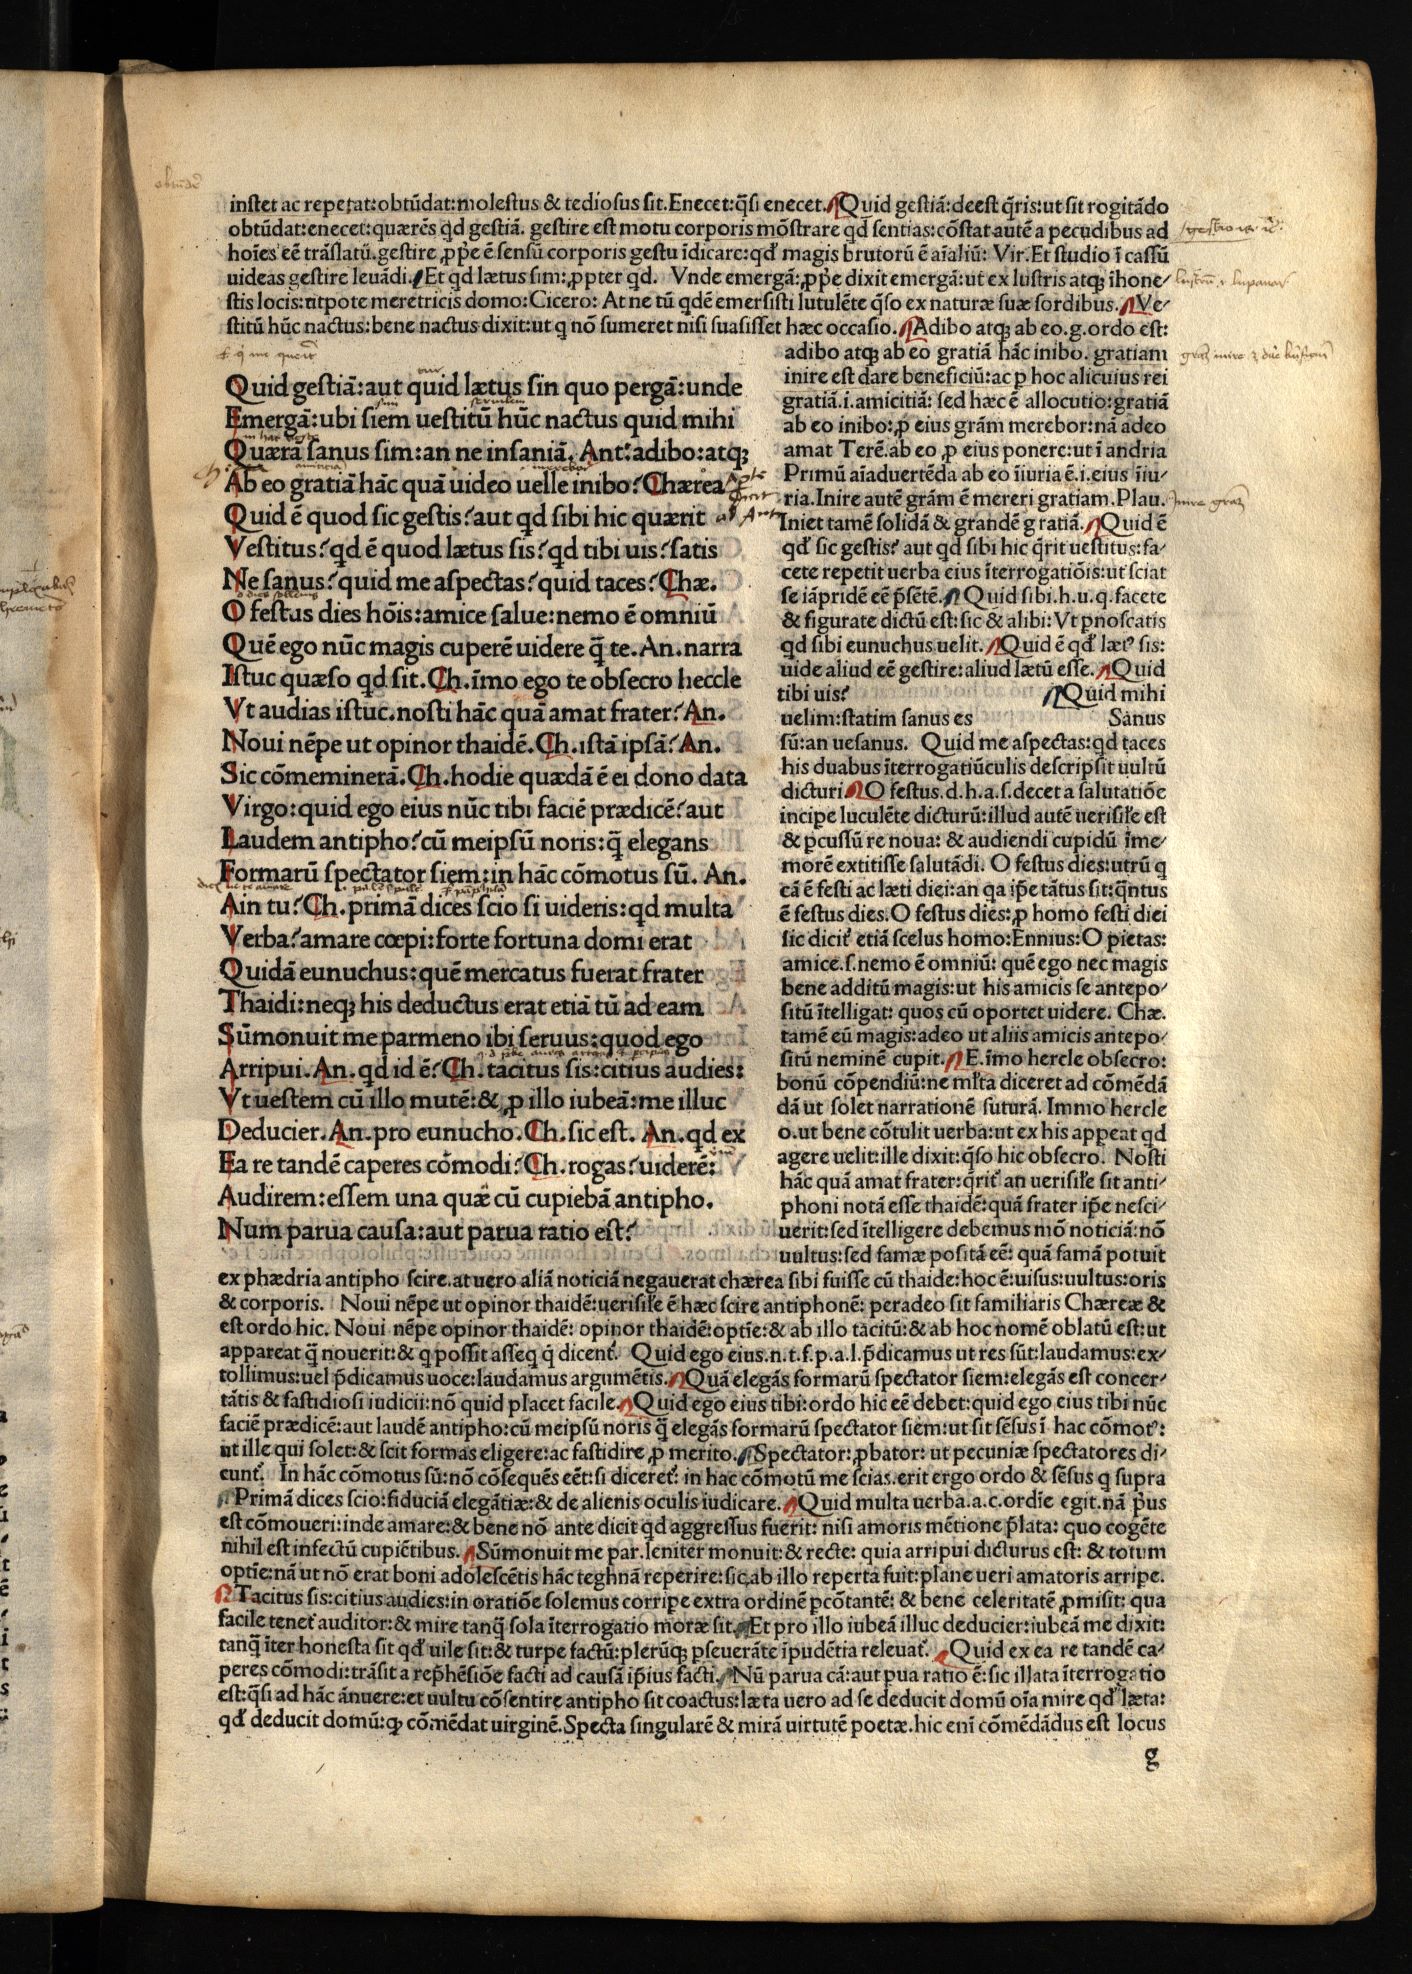 instet ac repetat:obtũdat:molestus & tediosus sit.Enecet:q̃si enecet.Quid gestiã:deest q̃ris:ut sit rogitãdo
obtũdat:enecet:quærẽs qd gestiã. gestire est motu corporis mõstrare qđ sentias:cõstat autẽ a pecudibus ad
hoĩes eẽ trãslatũ.gestire ꝓp̃e ẽ sensũ corporis gestu ĩdicare:qđ magis brutorũ ẽ aĩaliũ: Vir.Et studio ĩ cassũ
uideas gestire leuãdi.Et qđ lætus sim:ꝓpter qd. Vnde emergã:ꝓp̃e dixit emergã:ut ex lustris atqꝫ ĩhone⸗
stis locis:utpote meretricis domo:Cicero: At ne tũ qdẽ emersisti lutulẽte q̃so ex naturæ suæ sordibus.Ve⸗
stitũ hũc nactus:bene nactus dixit:ut q nõ sumeret nisi suasisset hæc occasio.Adibo atqꝫ ab eo.g.ordo est:
Quid gestiã:aut quid lætus sin quo pergã:unde
Emergã:ubi siem uestitũ hũc nactus quid mihi
Quærã sanus sim:an ne insaniã. Ant:adibo:atqꝫ
Ab eo gratiã hãc quã uideo uelle inibo?Chærea
Quid ẽ quod sic gestis?aut qd sibi hic quærit
Vestitus?qd ẽ quod lætus sis?qd tibi uis?satis
Ne sanus?quid me aspectas?quid taces?Chæ.
O festus dies hõis:amice salue:nemo ẽ omniũ
Quẽ ego nũc magis cuperẽ uidere q̃ te.An.narra
Istuc quæso qd sit.Ch.ĩmo ego te obsecro heccle
Vt audias istuc.nosti hãc quã amat frater?An.
Noui nẽpe ut opinor thaidẽ.Ch.istã ipsã?An.
Sic cõmeminerã.Ch.hodie quædã ẽ ei dono data
Virgo:quid ego eius nũc tibi faciẽ prædicẽ?aut
Laudem antipho?cũ meipsũ noris:q̃ elegans
Formarũ spectator siem:in hãc cõmotus sũ. An.
Ain tu?Ch.primã dices scio si uideris:qd multa
Verba?amare cœpi:forte fortuna domi erat
Quidã eunuchus:quẽ mercatus fuerat frater
Thaidi:neqꝫ his deductus erat etiã tũ ad eam
Sũmonuit me parmeno ibi seruus:quod ego
Arripui.An.qd id ẽ?Ch.tacitus sis:citius audies:
Vt uestem cũ illo mutẽ:& ꝓ illo iubeã:me illuc
Deducier.An.pro eunucho.Ch.sic est. An.qd ex
Ea re tandẽ caperes cõmodi?Ch.rogas?uiderẽ:
Audirem:essem una quæ cũ cupiebã antipho.
Num parua causa:aut parua ratio est?
adibo atqꝫ ab eo gratiã hãc inibo. gratiam
inire est dare beneficiũ:ac p hoc alicuius rei
gratiã.i.amicitiã: sed hæc ẽ allocutio:gratiã
ab eo inibo:ꝓ eius grãm merebor:nã adeo
amat Terẽ.ab eo ꝓ eius ponere:ut ĩ andria
Primũ aĩaduertẽda ab eo ĩiuria ẽ.i.eius ĩiu⸗
ria.Inire autẽ grãm ẽ mereri gratiam.Plau.
Iniet tamẽ solidã & grandẽ gratiã.Quid ẽ
qđ sic gestis? aut qd sibi hic q̃rit uestitus:fa⸗
cete repetit uerba eius ĩterrogatiõis:ut sciat
se iãpridẽ eẽ p̃sẽtẽ.Quid sibi.h.u.q.facete
& figurate dictũ est:sic & alibi:Vt pnoscatis
qd sibi eunuchus uelit.Quid ẽ qđ læt⁹ sis:
uide aliud eẽ gestire:aliud lætũ esse.Quid
tibi uis? Quid mihi
uelim:statim sanus es Sanus
sũ:an uesanus. Quid me aspectas:qd taces
his duabus ĩterrogatiũculis descripsit uultũ
dicturi O festus.d.h.a.s.decet a salutatiõe
incipe luculẽte dicturũ:illud autẽ uerisiłe est
& pcussũ re noua: & audiendi cupidũ ĩme⸗
morẽ extitisse salutãdi. O festus dies:utrũ q
cã ẽ festi ac læti diei:an qa ip̃e tãtus sit:q̃ntus
ẽ festus dies.O festus dies:ꝓ homo festi diei
sic dicit̃ etiã scelus homo:Ennius:O pietas:
amice.s.nemo ẽ omniũ: quẽ ego nec magis
bene additũ magis:ut his amicis se antepo⸗
sitũ ĩtelligat: quos cũ oportet uidere. Chæ.
tamẽ eũ magis:adeo ut aliis amicis antepo⸗
sitũ neminẽ cupit.E.ĩmo hercle obsecro:
bonũ cõpendiũ:ne młta diceret ad cõmẽdã
dã ut solet narrationẽ suturã. Immo hercle
o.ut bene cõtulit uerba:ut ex his appeat qd
agere uelit:ille dixit:q̃so hic obsecro. Nosti
hãc quã amat frater:q̃rit̃ an uerisiłe sit anti⸗
phoni notã esse thaidẽ:quã frater ip̃e nesci⸗
uerit:sed ĩtelligere debemus mõ noticiã:nõ
uultus:sed famæ positã eẽ: quã famã potuit
ex phædria antipho scire.at uero aliã noticiã negauerat chærea sibi fuisse cũ thaide:hoc ẽ:uisus:uultus:oris
& corporis. Noui nẽpe ut opinor thaidẽ:uerisiłe ẽ hæc scire antiphonẽ: peradeo sit familiaris Chæreæ &
est ordo hic. Noui nẽpe opinor thaidẽ: opinor thaidẽ:optĩe:& ab illo tacitũ:& ab hoc nomẽ oblatũ est:ut
appareat q̃ nouerit:& q possit assẽq q̇ dicent̃. Quid ego eius.n.t.f.p.a.l.p̃dicamus ut res sũt:laudamus:ex⸗
tollimus:uel p̃dicamus uoce:laudamus argumẽtis.Quã elegãs formarũ spectator siem:elegãs est concer⸗
tãtis & fastidiosi iudicii:nõ quid placet facile.Quid ego eius tibi:ordo hic eẽ debet:quid ego eius tibi nũc
faciẽ prædicẽ:aut laudẽ antipho:cũ meipsũ noris q̃ elegãs formarũ spectator siem:ut sit sẽsus ĩ hac cõmot⁹:
ut ille qui solet:& scit formas eligere:ac fastidire ꝓ merito.Spectator:ꝓbator: ut pecuniæ spectatores di⸗
cunt̃. In hãc cõmotus sũ:nõ cõsequẽs eẽt:si diceret̃: in hac cõmotũ me scias.erit ergo ordo & sẽsus q supra
Primã dices scio:fiduciã elegãtiæ:& de alienis oculis iudicare.Quid multa uerba.a.c.ordĩe egit.nã p̃us
est cõmoueri:inde amare:& bene nõ ante dicit qd aggressus fuerit: nisi amoris mẽtione p̃lata: quo cogẽte
nihil est infectũ cupiẽtibus.Sũmonuit me par.leniter monuit:& recte: quia arripui dicturus est: & totum
optĩe:nã ut nõ erat boni adolescẽtis hãc teghnã reperire:sic,ab illo reperta fuit:plane ueri amatoris arripe.
Tacitus sis:citius audies:in oratiõe solemus corripe extra ordinẽ pcõtantẽ: & bene celeritatẽ ꝓmisit: qua
facile tenet̃ auditor:& mire tanq̃ sola ĩterrogatio moræ sit.Et pro illo iubeã illuc deducier:iubeã me dixit:
tanq̃ ĩter honesta sit qđ uile sit:& turpe factũ:plerũqꝫ pseuerãte ĩpudẽtia releuat̃. Quid ex ea re tandẽ ca⸗
peres cõmodi:trãsit a rep̃hẽsiõe facti ad causã ip̃ius facti.Nũ parua cã:aut pua ratio ẽ:sic illata ĩterrogatio
est:q̃si ad hãc ãnuere:et uultu cõsentire antipho sit coactus:læta uero ad se deducit domũ oĩa mire qđ læta:
qđ deducit domũ:qꝫ cõmẽdat uirginẽ.Specta singularẽ & mirã uirtutẽ poetæ.hic enĩ cõmẽdãdus est locus
g